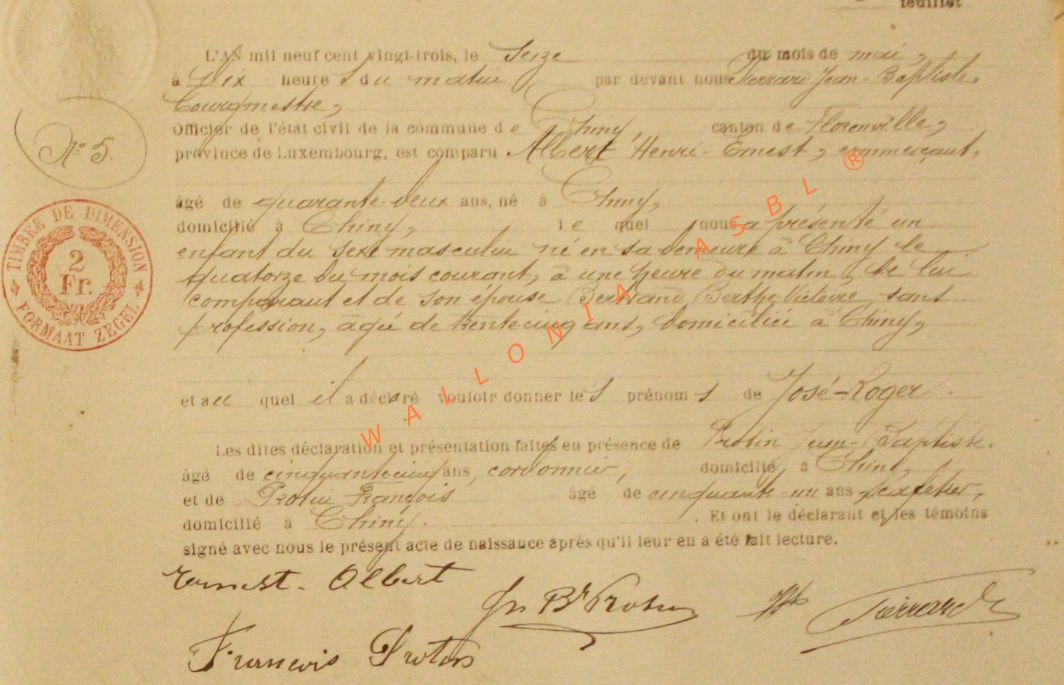 feuillet
L'AN mil neuf cent vingt-trois, le seize du mois de mai,
à dix heure s du matin par devant nous Pierrard Jean-Baptiste.
Bourgmestre,
Officier de l'état civil de la commune de Chiny, canton de Florenville,
province de Luxembourg, est comparu Albert, Henri-Ernest, commerçant,
N° 5.
âgé de quarante-deux ans, né à Chiny,
domicilié à Chiny, le quel nous a présenté un
enfant du sexe masculin né en sa demeure à Chiny le
quatorze du mois courant, à une heure du matin, de lui
comparant et de son épouse Bertrand Berthe Victoire, sans
profession, âgée de trente cinq ans, domiciliée à Chiny,
TIMBRE DE DIMENSION
2
Fr.
FORMAAT ZEGEL
et au quel il a déclaré vouloir donner le s prénom s de José-Roger.
Les dites déclaration et présentation faites en présence de Protin Jean-Baptiste.
âgé de cinquante cinq ans, cordonnier, domicilié à Chiny,
et de Protin François âgé de cinquante-un ans cafetier,
domicilié à Chiny. Et ont le déclarant et les témoins
signé avec nous le présent acte de naissance après qu'il leur en a été fait lecture.
Ernest. Albert
Jn Bte Protin
JB Pierrard
François Protin
WALLONIA ASBL ®